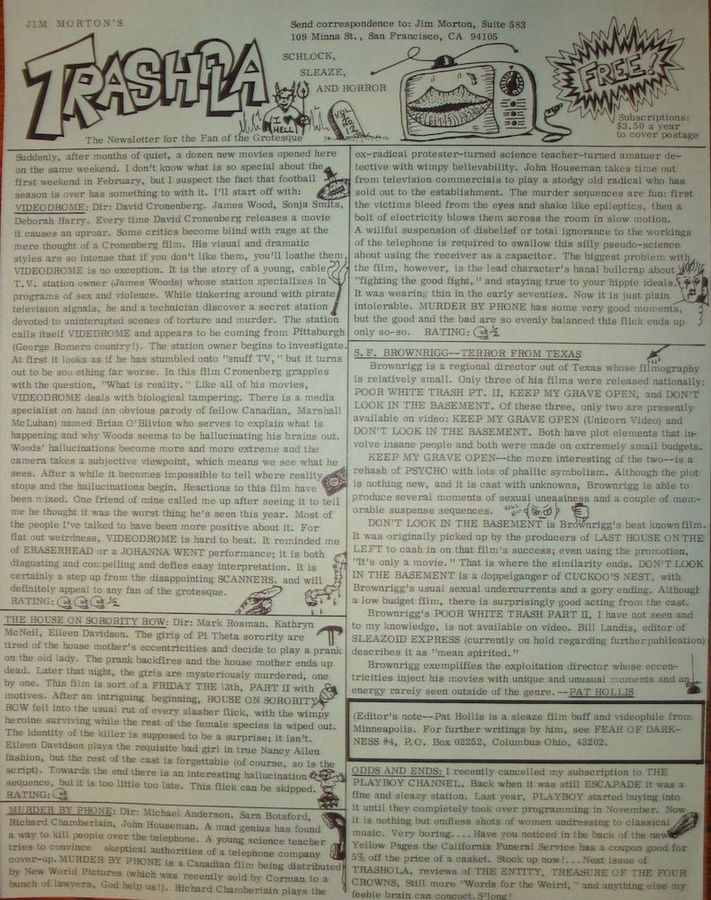 JIM MORTON'S
TRASHOLA
SCHLOCK,
SLEAZE,
AND HORROR
I ♥
HELL!
The Newsletter for the Fan of the Grotesque
Send correspondence to: Jim Morton, Suite 583
109 Minna St., San Francisco, CA 94105
FREE!
Subscriptions:
$3.50 a year
to cover postage
Suddenly, after months of quiet, a dozen new movies opened here
on the same weekend. I don't know what is so special about the
first weekend in February, but I suspect the fact that football
season is over has something to with it. I'll start off with:
VIDEODROME: Dir: David Cronenberg. James Wood, Sonja Smits,
Deborah Harry. Every time David Cronenberg releases a movie
it causes an uproar. Some critics become blind with rage at the
mere thought of a Cronenberg film. His visual and dramatic
styles are so intense that if you don't like them, you'll loathe them.
VIDEODROME is no exception. It is the story of a young, cable
T.V. station owner (James Woods) whose station specializes in
programs of sex and violence. While tinkering around with pirate
television signals, he and a technician discover a secret station
devoted to unterupted scenes of torture and murder. The station
calls itself VIDEDROME and appears to be coming from Pittsburgh
(George Romero country!). The station owner begins to investigate.
At first it looks as if he has stumbled onto "snuff TV," but it turns
out to be something far worse. In this film Cronenberg grapples
with the question, "What is reality." Like all of his movies,
VIDEODROME deals with biological tampering. There is a media
specialist on hand (an obvious parody of fellow Canadian, Marshall
McLuhan) named Brian O'Blivion who serves to explain what is
happening and why Woods seems to be hallucinating his brains out.
Woods' hallucinations become more and more extreme and the
camera takes a subjective viewpoint, which means we see what he
sees. After a while it becomes impossible to tell where reality
stops and the hallucinations begin. Reactions to this film have
been mixed. One friend of mine called me up after seeing it to tell
me he thought it was the worst thing he's seen this year. Most of
the people I've talked to have been more positive about it. For
flat out weirdness, VIDEODROME is hard to beat. It reminded me
of ERASERHEAD or a JOHANNA WENT performance; it is both
disgusting and compelling and defies easy interpretation. It is
certainly a step up from the disappointing SCANNERS. and will
definitely appeal to any fan of the grotesque.
RATING: ½
THE HOUSE ON SORORITY ROW: Dir: Mark Rosman. Kathryn
McNeil, Eileen Davidson. The girls of Pi Theta sorority are
tired of the house mother's eccentricities and decide to play a prank
on the old lady. The prank backfires and the house mother ends up
dead. Later that night, the girls are mysteriously murdered, one
by one. This film is sort of a FRIDAY THE 13th, PART II with
motives. After an intriguing beginning, HOUSE ON SORORITY
ROW fell into the usual rut of every slasher flick, with the wimpy
heroine surviving while the rest of the female species is wiped out.
The identity of the killer is supposed to be a surprise; it isn't.
Eileen Davidson plays the requisite bad girl in true Nancy Allen
fashion, but the rest of the cast is forgettable (of course, so is the
script). Towards the end there is an interesting hallucination
sequence, but it is too little too late. This flick can be skipped.
RATING:
MURDER BY PHONE: Dir: Michael Anderson. Sara Botsford,
Richard Chamberlain, John Houseman. A mad genius has found
a way to kill people over the telephone. A young science teacher
tries to convince skeptical authorities of a telephone company
cover-up. MURDER BY PHONE is a Canadian film being distributed
by New World Pictures (which was recently sold by Corman to a
bunch of lawyers, God help us!). Richard Chamberlain plays the
ex-radical protester-turned science teacher-turned amatuer de-
tective with wimpy believability. John Houseman takes time out
from television commercials to play a stodgy old radical who has
sold out to the establishment. The murder sequences are fun: first
the victims bleed from the eyes and shake like epileptics, then a
bolt of electricity blows them across the room in slow motion.
A willful suspension of disbelief or total ignorance to the workings
of the telephone is required to swallow this silly pseudo-science
about using the receiver as a capacitor. The biggest problem with
the film, however, is the lead character's banal bullcrap about
"fighting the good fight," and staying true to your hippie ideals.
It was wearing thin in the early seventies. Now it is just plain
intolerable. MURDER BY PHONE has some very good moments,
but the good and the bad are so evenly balanced this flick ends up
only so-so. RATING: ½
S.F. BROWNRIGG--TERROR FROM TEXAS
Brownrigg is a regional director out of Texas whose filmography
is relatively small. Only three of his films were released nationally:
POOR WHITE TRASH PT. II, KEEP MY GRAVE OPEN, and DON'T
LOOK IN THE BASEMENT. Of these three, only two are presently
available on video: KEEP MY GRAVE OPEN (Unicorn Video) and
DON'T LOOK IN THE BASEMENT. Both have plot elements that in-
volve insane people and both were made on extremely small budgets.
KEEP MY GRAVE OPEN--the more interesting of the two--is a
rehash of PSYCHO with lots of phallic symbolism. Although the plot
is nothing new, and it is cast with unknowns, Brownrigg is able to
produce several moments of sexual uneasiness and a couple of mem-
orable suspense sequences.
DON'T LOOK IN THE BASEMENT is Brownrigg's best known film.
It was originally picked up by the producers of LAST HOUSE ON THE
LEFT to cash in on that film's success; even using the promotion,
"It's only a movie." That is where the similarity ends. DON'T LOOK
IN THE BASEMENT is a doppelganger of CUCKOO'S NEST, with
Brownrigg's usual sexual undercurrents and a gory ending. Although
a low budget film, there is surprisingly good acting from the cast.
Brownrigg's POOR WHITE TRASH PART II, I have not seen and
to my knowledge, is not available on video. Bill Landis, editor of
SLEAZOID EXPRESS (currently on hold regarding further publication)
describes it as "mean spirited."
Brownrigg exemplifies the exploitation director whose eccen-
tricities inject his movies with unique and unusual moments and an
energy rarely seen outside of the genre. --PAT HOLLIS
(Editor's note--Pat Hollis is a sleaze film buff and videophile from
Minneapolis. For further writings by him, see FEAR OF DARK-
NESS #4, P.O. Box 02252, Columbus Ohio, 43202.
ODDS AND ENDS: I recently cancelled my subscription to THE
PLAYBOY CHANNEL. Back when it was still ESCAPADE it was a
fine and sleazy station. Last year, PLAYBOY started buying into
it until they completely took over programming in November. Now
it is nothing but endless shots of women undressing to classical
music. Very boring.... Have you noticed in the back of the new
Yellow Pages the California Funeral Service has a coupon good for
5% off the price of a casket. Stock up now!... Next issue of
TRASHOLA, reviews of THE ENTITY, TREASURE OF THE FOUR
CROWNS, Still more "Words for the Weird," and anything else my
feeble brain can concoct. S'long!